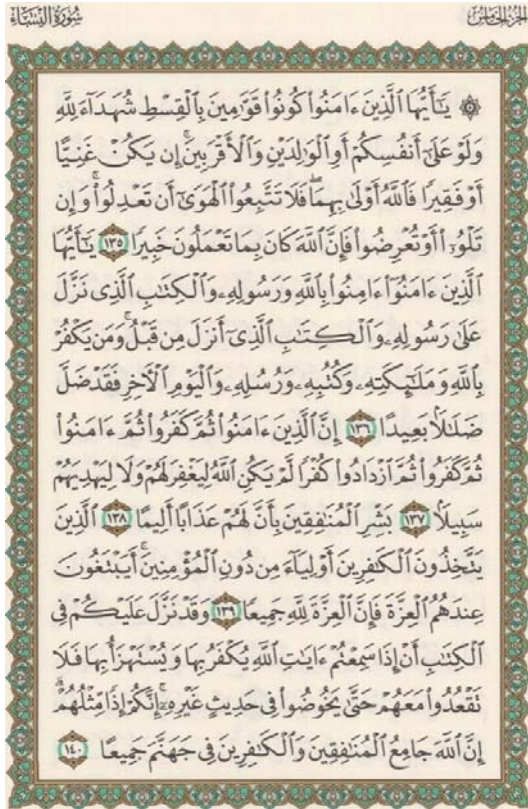 الجزء الخامس
سُورَةُ النِّسَاءِ
۞ يَـٰٓأَيُّهَا ٱلَّذِينَ ءَامَنُوا۟ كُونُوا۟ قَوَّٰمِينَ بِٱلْقِسْطِ شُهَدَآءَ لِلَّهِ
وَلَوْ عَلَىٰٓ أَنفُسِكُمْ أَوِ ٱلْوَٰلِدَيْنِ وَٱلْأَقْرَبِينَ ۚ إِن يَكُنْ غَنِيًّا
أَوْ فَقِيرًا فَٱللَّهُ أَوْلَىٰ بِهِمَا ۖ فَلَا تَتَّبِعُوا۟ ٱلْهَوَىٰٓ أَن تَعْدِلُوا۟ ۚ وَإِن
تَلْوُۥٓا۟ أَوْ تُعْرِضُوا۟ فَإِنَّ ٱللَّهَ كَانَ بِمَا تَعْمَلُونَ خَبِيرًا ١٣٥ يَـٰٓأَيُّهَا
ٱلَّذِينَ ءَامَنُوٓا۟ ءَامِنُوا۟ بِٱللَّهِ وَرَسُولِهِۦ وَٱلْكِتَـٰبِ ٱلَّذِى نَزَّلَ
عَلَىٰ رَسُولِهِۦ وَٱلْكِتَـٰبِ ٱلَّذِىٓ أَنزَلَ مِن قَبْلُ ۚ وَمَن يَكْفُرْ
بِٱللَّهِ وَمَلَـٰٓئِكَتِهِۦ وَكُتُبِهِۦ وَرُسُلِهِۦ وَٱلْيَوْمِ ٱلْـَٔاخِرِ فَقَدْ ضَلَّ
ضَلَـٰلًۢا بَعِيدًا ١٣٦ إِنَّ ٱلَّذِينَ ءَامَنُوا۟ ثُمَّ كَفَرُوا۟ ثُمَّ ءَامَنُوا۟
ثُمَّ كَفَرُوا۟ ثُمَّ ٱزْدَادُوا۟ كُفْرًا لَّمْ يَكُنِ ٱللَّهُ لِيَغْفِرَ لَهُمْ وَلَا لِيَهْدِيَهُمْ
سَبِيلًۢا ١٣٧ بَشِّرِ ٱلْمُنَـٰفِقِينَ بِأَنَّ لَهُمْ عَذَابًا أَلِيمًا ١٣٨ ٱلَّذِينَ
يَتَّخِذُونَ ٱلْكَـٰفِرِينَ أَوْلِيَآءَ مِن دُونِ ٱلْمُؤْمِنِينَ ۚ أَيَبْتَغُونَ
عِندَهُمُ ٱلْعِزَّةَ فَإِنَّ ٱلْعِزَّةَ لِلَّهِ جَمِيعًا ١٣٩ وَقَدْ نَزَّلَ عَلَيْكُمْ فِى
ٱلْكِتَـٰبِ أَنْ إِذَا سَمِعْتُمْ ءَايَـٰتِ ٱللَّهِ يُكْفَرُ بِهَا وَيُسْتَهْزَأُ بِهَا فَلَا
تَقْعُدُوا۟ مَعَهُمْ حَتَّىٰ يَخُوضُوا۟ فِى حَدِيثٍ غَيْرِهِۦٓ ۚ إِنَّكُمْ إِذًا مِّثْلُهُمْ ۗ
إِنَّ ٱللَّهَ جَامِعُ ٱلْمُنَـٰفِقِينَ وَٱلْكَـٰفِرِينَ فِى جَهَنَّمَ جَمِيعًا ١٤٠